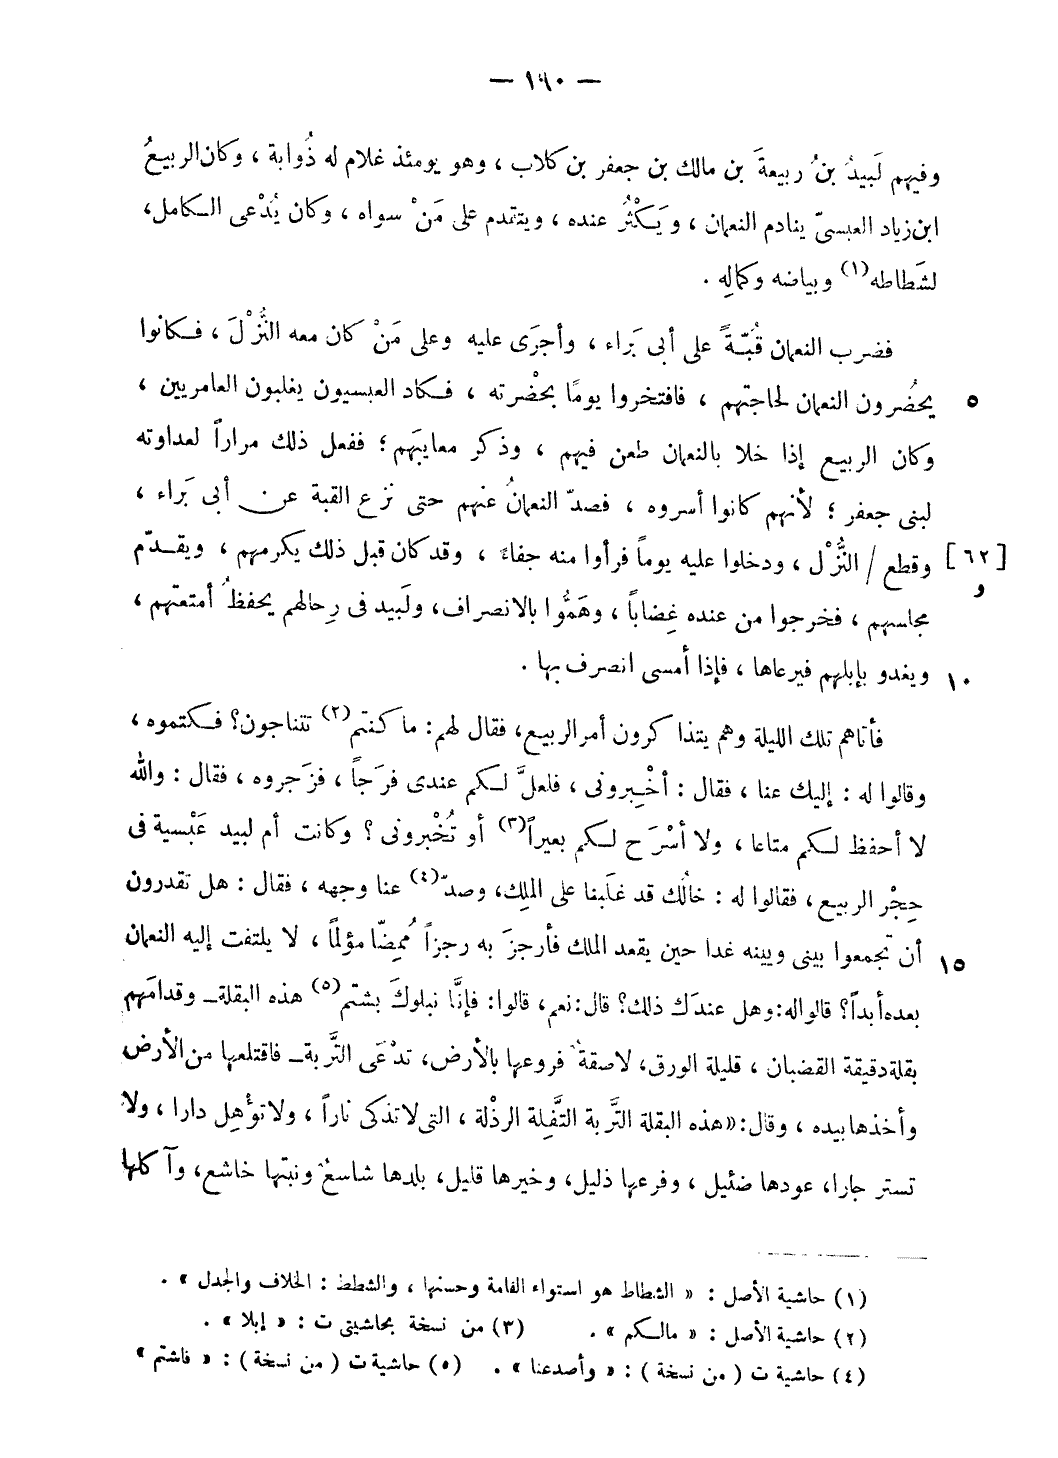 — ١٩٠ —
وفيهم لَبيدُ بنُ ربيعةَ بن مالك بن جعفر بن كلاب ، وهو يومئذ غلام له ذُوابة ، وكان الربيعُ
ابن زياد العبسىّ ينادم النعمان ، ويَكْثُر عنده ، ويتقدم على مَنْ سواه ، وكان يُدْعى الكامل،
لشَطاطه(١) وبياضه وكمالِه .
فضرب النعمان قُبّةً على أبى بَراء ، وأجرَى عليه وعلى مَنْ كان معه النُّزْلَ ، فكانوا
يحضُرون النعمان لحاجتهم ، فافتخروا يومًا بحَضْرته ، فكاد العبسيون يغلبون العامريين ، ٥
وكان الربيع إذا خلا بالنعمان طعن فيهم ، وذكر معايبَهم؛ ففعل ذلك مراراً لعداوته
لبنى جعفر ؛ لأنهم كانوا أسروه ، فصدّ النعمانُ عنهم حتى نزع القبة عن أبى بَراء ،
[٦٢ و] وقطع / النُّزْل ، ودخلوا عليه يوماً فرأوا منه جفاءً ، وقد كان قبل ذلك يكرمهم ، ويقدّم
مجالسهم ، فخرجوا من عنده غِضاباً ، وهَمُّوا بالانصراف، ولَبيد فى رِحالهم يحفظُ أمتعتهم ،
ويغدو بإبلهم فيرعاها ، فإذا أمسى انصرف بها . ١٠
فأتاهم تلك الليلة وهم يتذاكرون أمر الربيع، فقال لهم: ما كنتم(٢) تتناجون؟ فكتموه ،
وقالوا له : إليك عنا ، فقال : أخْبِرونى ، فلعلَّ لكم عندى فرَجاً ، فزَجروه ، فقال : والله
لا أحفظ لكم متاعا ، ولا أسْرَح لكم بعيراً(٣) أو تُخْبرونى ؟ وكانت أم لبيد عَبْسية فى
حِجْر الربيع ، فقالوا له : خالُك قد غلَبنا على الملِك، وصدّ(٤) عنا وجهه ، فقال : هل تقدرون
أن تجمعوا بينى وبينه غدا حين يقعد الملك فأرجزَ به رجزاً مُمِضًّا مؤلماً ، لا يلتفت إليه النعمان ١٥
بعده أبداً؟ قالوا له: وهل عندَك ذلك؟ قال: نعم، قالوا: فإنَّا نبلوكَ بشتم(٥) هذه البقلة_ وقدامَهم
بقلة دقيقة القضبان ، قليلة الورق، لاصقةٌ فروعها بالأرض، تدْعَى التَّربة_ فاقتلعها من الأرض
وأخذها بيده ، وقال: «هذه البقلة التَّربة التَّفِلة الرذْلة ، التى لا تذكى ناراً ، ولا تؤْهِل دارا ، ولا
تستر جارا، عودها ضئيل ، وفرعها ذليل، وخيرها قليل، بلدها شاسعٌ ونبتها خاشع، وآكلها
(١) حاشية الأصل : « الشطاط هو استواء القامة وحسنها ، والشطط : الخلاف والجدل » .
(٢) حاشية الأصل : « مالكم » . (٣) من نسخة بحاشيتى ت : « إبلا » .
(٤) حاشية ت ( من نسخة ) : « وأصدعنا » . (٥) حاشية ت ( من نسخة ) : « فاشتم »